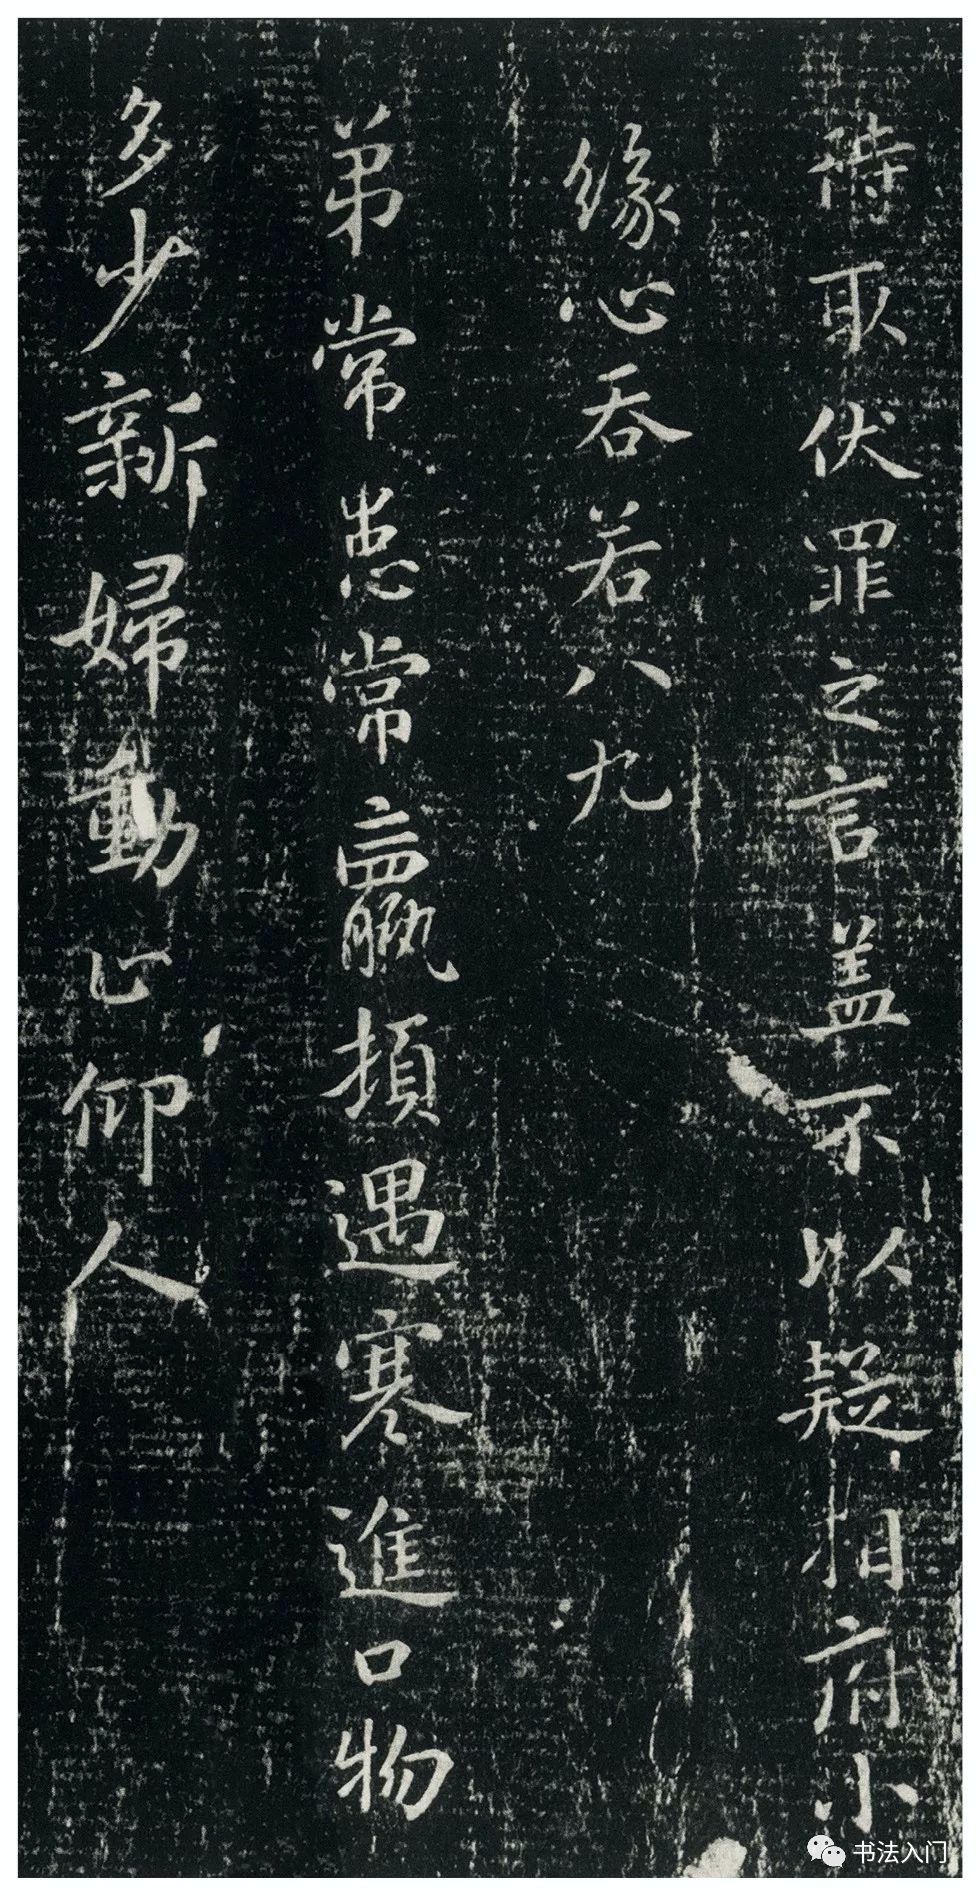 待取伏罪之言盖不以疑相府小
缘心吞若八九
弟常患常羸頓遇寒進口物
多少新婦動止仰人
书法入门